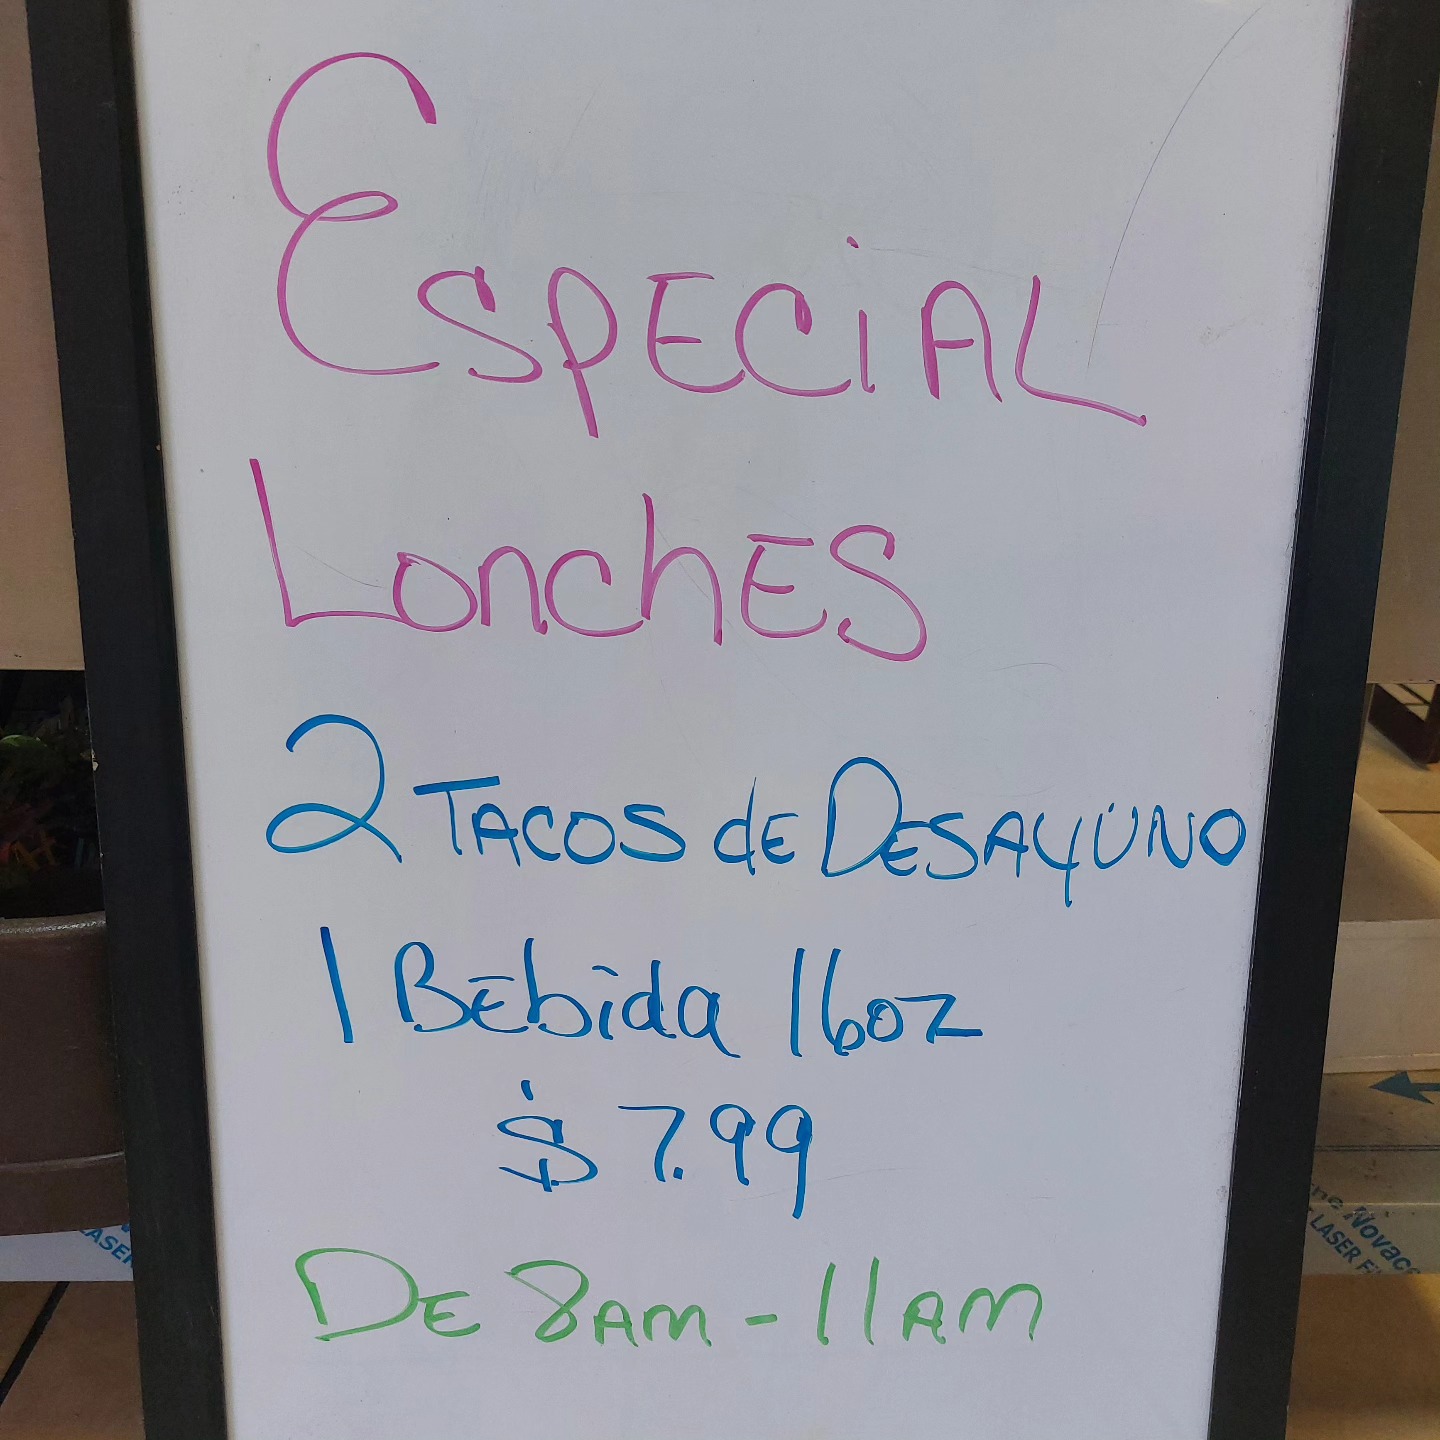 EspECiAL
LonchES
2 TACOS dE DESAYUNO
1 Bebida 16oz
$ 7.99
DE 8AM - 11AM
LASER
ne Novac
LASER F